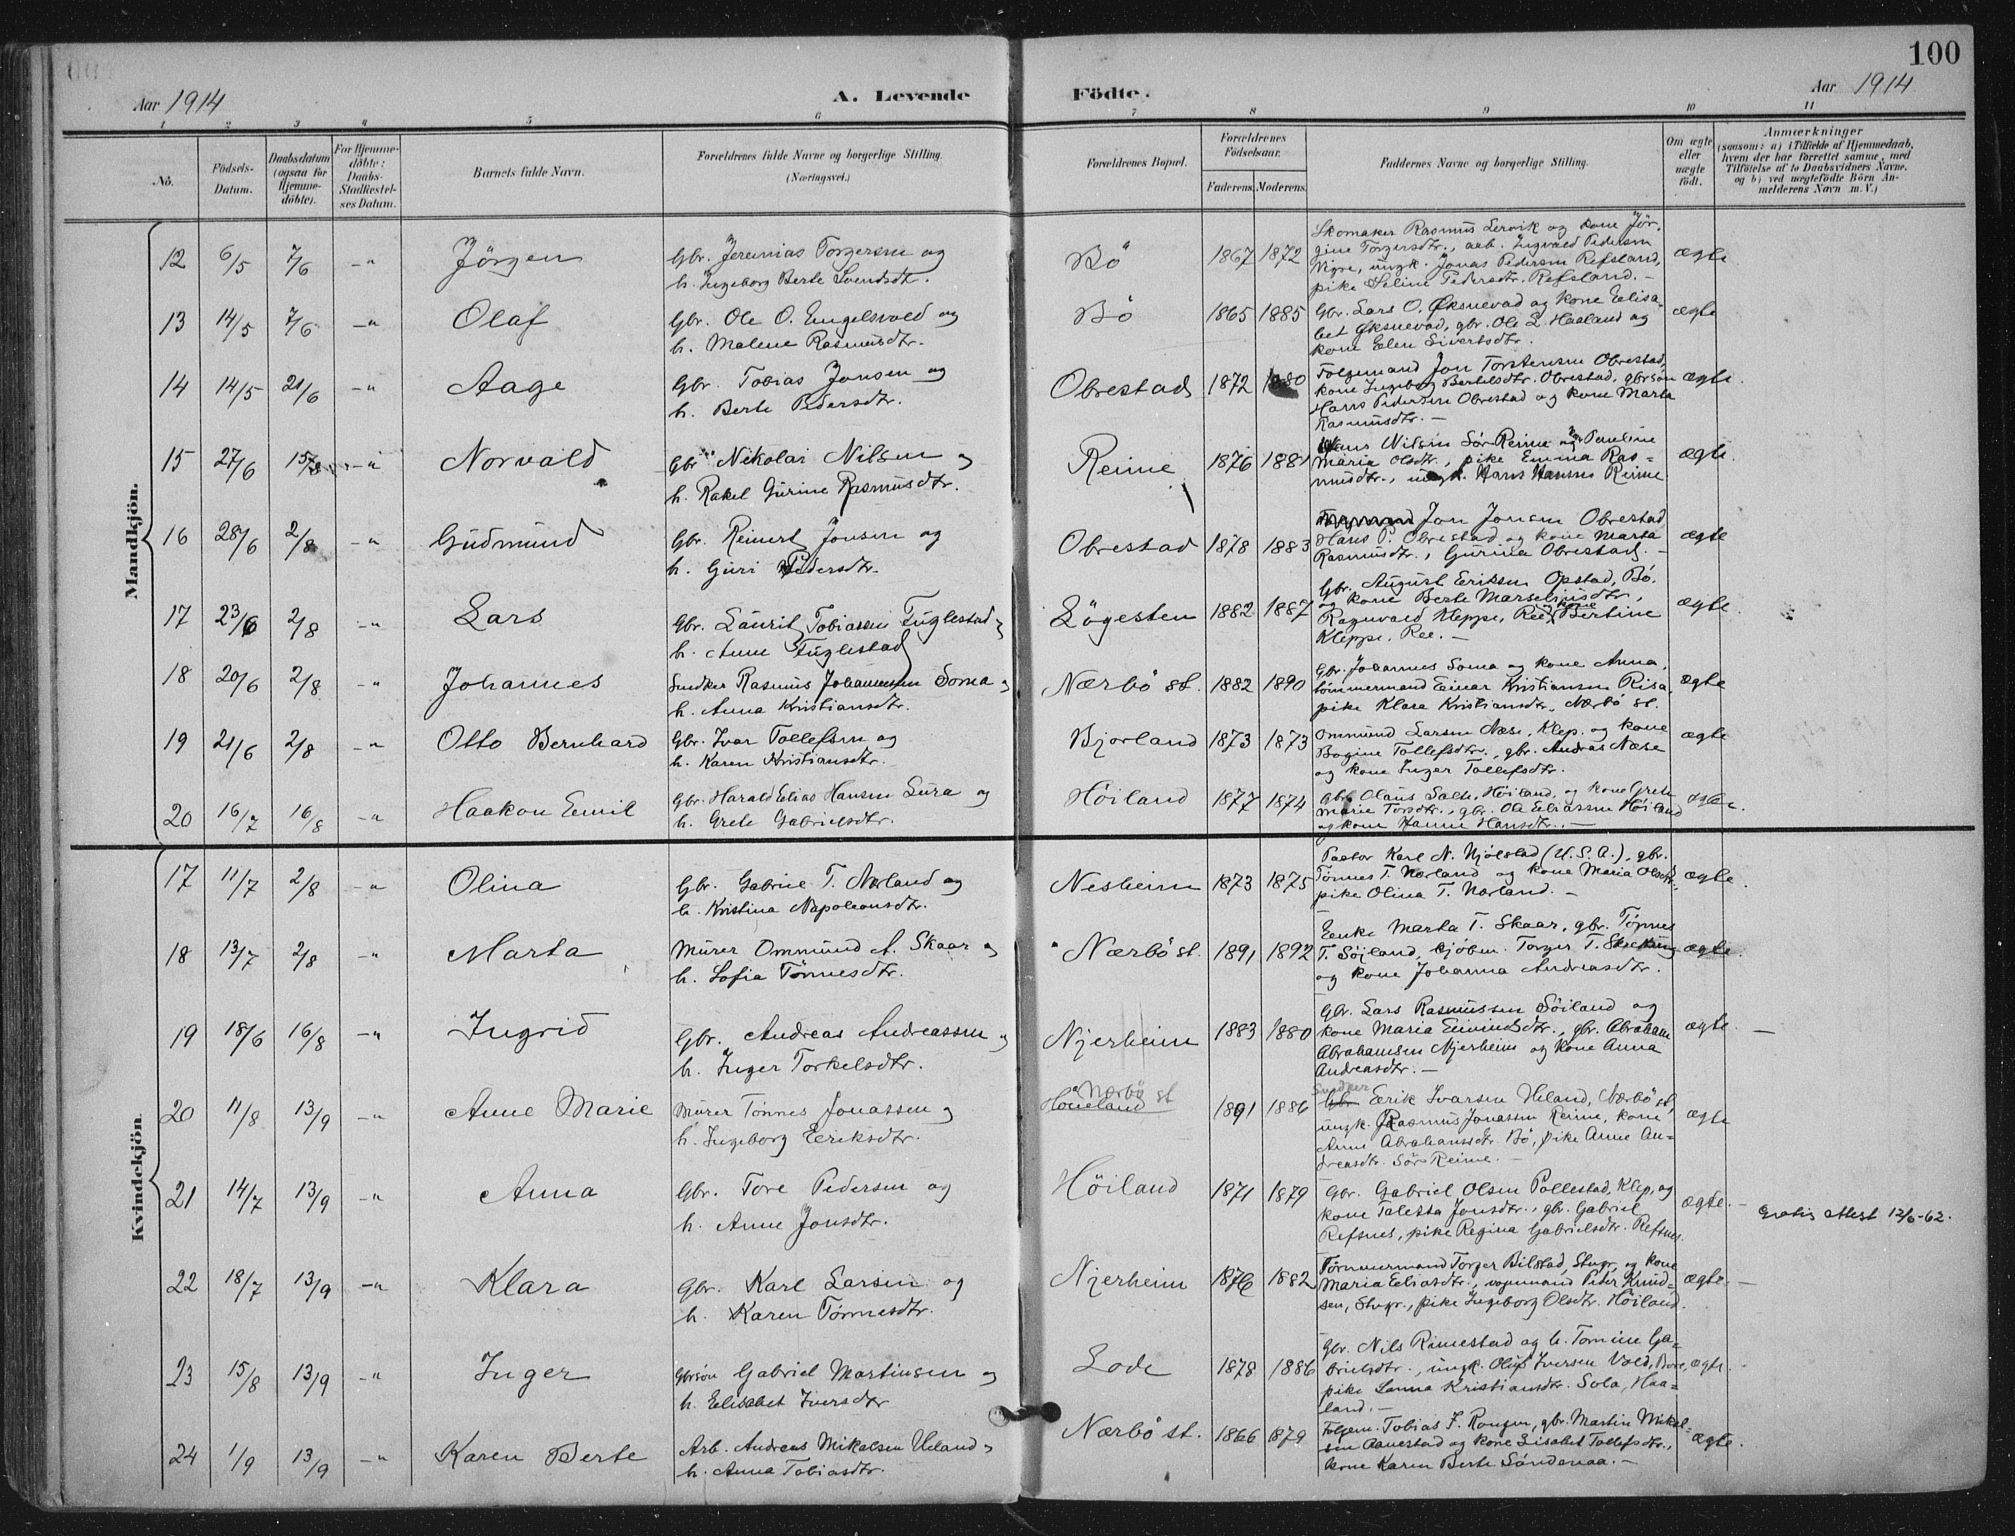 100
Aar 1914
A. Levende
Födte.
Aar 1914
1 2 3 4 5 6 7 8 9 10 11
No.
Födsels-
Datum.
Daabsdatum
(ogsaa for
Hjemme-
döbte).
For Hjemme-
döbte:
Daabs-
Stadfæstel-
ses Datum.
Barnets fulde Navn.
Forældrenes fulde Navne og borgerlige Stilling.
(Næringsvei.)
Forældrenes Bopæl.
Forældrenes
Födselsaar.
Faderens. Moderens.
Faddernes Navne og borgerlige Stilling.
Om ægte
eller
uægte
födt.
Anmærkninger
(saasom: a) i Tilfælde af Hjemmedaab,
hvem der har forrettet samme, med
Tilföielse af to Daabsvidners Navne,
og b) ved uægtefödte Börn An-
melderens Navn m. V.)
Mandkjön.
12 6/5 7/6 -"- Jörgen
Gbr. Jeremias Torgersen og
h. Ingeborg Berte Svendsdt.
Bö 1867 1872
Skomaker Rasmus Lervik og kone Jör-
gine Torgersdtr., arb. Ingvald Pedersen
Nigre, ungk. Jonas Pedersen Refsland,
pike Seline Pedersdtr. Refsland. -
ægte
13 14/5 7/6 -"- Olaf
Gbr. Ole O. Engelsvold og
h. Malene Rasmusdtr.
Bö 1865 1885
Gbr. Lars O. Øksnevad og kone Elisa-
bet Øksnevad, gbr. Ole L. Haaland og
kone Elen Sivertsdtr.
ægte
14 14/5 21/6 -"- Aage
Gbr. Tobias Jonsen og
h. Berte Pedersdtr.
Obrestad 1872 1880
Folgemand Jon Torstensen Obrestad,
kone Ingeborg Bertelsdtr. Obrestad, gbrsøn
Hans Pedersen Obrestad og kone Marta
Rasmusdtr. -
ægte.
15 27/6 15/8 -"- Norvald
Gbr. Nikolai Nilsen og
h. Rakel Gurine Rasmusdtr.
Reime 1876 1881
Nilsen Sör-Reime og Pauline
Maria Olsdtr., pike Emma Ras-
musdtr., ungk. Hans Hansen Reime
ægte.
16 28/6 2/8 -"- Gudmund
Gbr. Reinert Jonsen og
h. Guri Pedersdtr.
Obrestad 1878 1883
Jon Jonsen Obrestad
Hans P. Obrestad og kone Marta
Rasmusdtr., Gurina Obrestad. -
ægte
17 23/6 2/8 -"- Lars
Gbr. Laurit Tobiassen Fuglestad og
h. Anne Fuglestad
Lögesten 1882 1887
Gbr. August Eriksen Opstad, Bö.
og kone Berte Marseliusdtr,
Ragnvald Kleppe, Ree, og kone Bertine
Kleppe, Ree. -
ægte.
18 20/6 2/8 -"- Johannes
Snedker Rasmus Johannesen Soma og
h. Anna Kristiansdtr.
Nærbö st. 1882 1890
Gbr. Johannes Soma og kone Anna,
tömmermand Einar Kristiansen Risa,
pike Klara Kristiansdtr, Nærbö st.
ægte
19 21/6 2/8 -"- Otto Bernhard
Gbr. Ivar Tollefsen og
h. Karen Kristiansdtr.
Bjorland 1873 1873
Ommund Larsen Næse, Klep. og kone
Bogine Tollefsdtr., gbr. Andreas Næse
og kone Inger Tollefsdtr.
ægte
20 16/7 16/8 -"- Haakon Emil
Gbr. Harald Elias Hansen Lura og
h. Grete Gabrielsdtr.
Höiland 1877 1874
Gbr. Olaus Salte, Höiland, og kone Grete
Marie Torsdtr., gbr. Ole Eliassen Höiland
og kone Hanne Hansdtr. -
ægte.
Kvindekjön
17 11/7 2/8 -"- Olina
Gbr. Gabriel T. Norland og
h. Kristina Napoleonsdtr.
Nesheim 1873 1875
Pastor Karl N. Njölstad (U.S.A.), gbr.
Tönnes T. Norland og kone Maria Olsdtr.,
pike Olina T. Norland. -
ægte.
18 13/7 2/8 -"- Marta
Murer Ommund A. Skaar og
h. Sofia Tönnesdtr.
Nærbö st. 1891 1892
Enke Marta T. Skaar, gbr. Tönnes
T. Söiland, kjöbm. Torger T.
og kone Johanna Andreasdtr.
ægte.
19 18/6 16/8 -"- Ingrid
Gbr. Andreas Andreassen og
h. Inger Torkelsdtr.
Njerheim 1883 1880
Gbr. Lars Rasmussen Söiland og
kone Maria Eivindsdtr., gbr. Abraham
Abrahamsen Njerheim og kone Anna
Andreasdtr. -
ægte. -
20 11/8 13/9 -"- Anne Marie
Murer Tönnes Jonassen og
h. Ingeborg Eriksdtr.
Nærbö st
Höneland
1891 1886
Snedker
Gbr. Erik Ivarsen Ueland, Nærbö st,
ungk. Rasmus Jonassen Reime, kone
Anne Abrahamsdtr. Bö, pike Anne An-
dreasdtr. Sör Reime. -
ægte
21 14/7 13/9 -"- Anna
Gbr. Tore Pedersen og
h. Anne Jonsdtr.
Höiland 1871 1879
Gbr. Gabriel Olsen Pollestad, Klep, og
kone Taletta Jonsdtr., gbr. Gabriel
Refsnes, pike Regina Gabrielsdtr. Refsnes.
ægte. -
Gratis attest 12/6-62.
22 18/7 13/9 -"- Klara
Gbr. Karl Larsen og
h. Karen Tönnesdtr.
Njerheim 1876 1882
Tömmermand Torger Bilstad, Stvgr., og kone
Maria Eliasdtr., vognmand Peder Knud-
sen, Stvgr., pike Ingeborg Olsdtr. Höiland.
ægte. -
23 15/8 13/9 -"- Inger
Gbrsön Gabriel Martinsen og
h. Elisabet Iversdtr
Lode 1878 1886
Gbr. Nils Rimestad og h. Tomine Ga-
brielsdtr., ungk. Oluf Iversen Vold, Bore,
pike Lanna Kristiansdtr. Sola, Haa-
land. -
ægte.
24 1/9 13/9 -"- Karen Berte
Arb. Andreas Mikalsen Ueland og
h. Anna Tobiasdtr.
Nærbö st. 1866 1879
Folgem. Tobias J. Rongen, gbr. Martin Mikal-
sen Aanestad og kone Lisabet Tollefsdtr.,
kone Karen Berte Söndenaa. -
ægte.